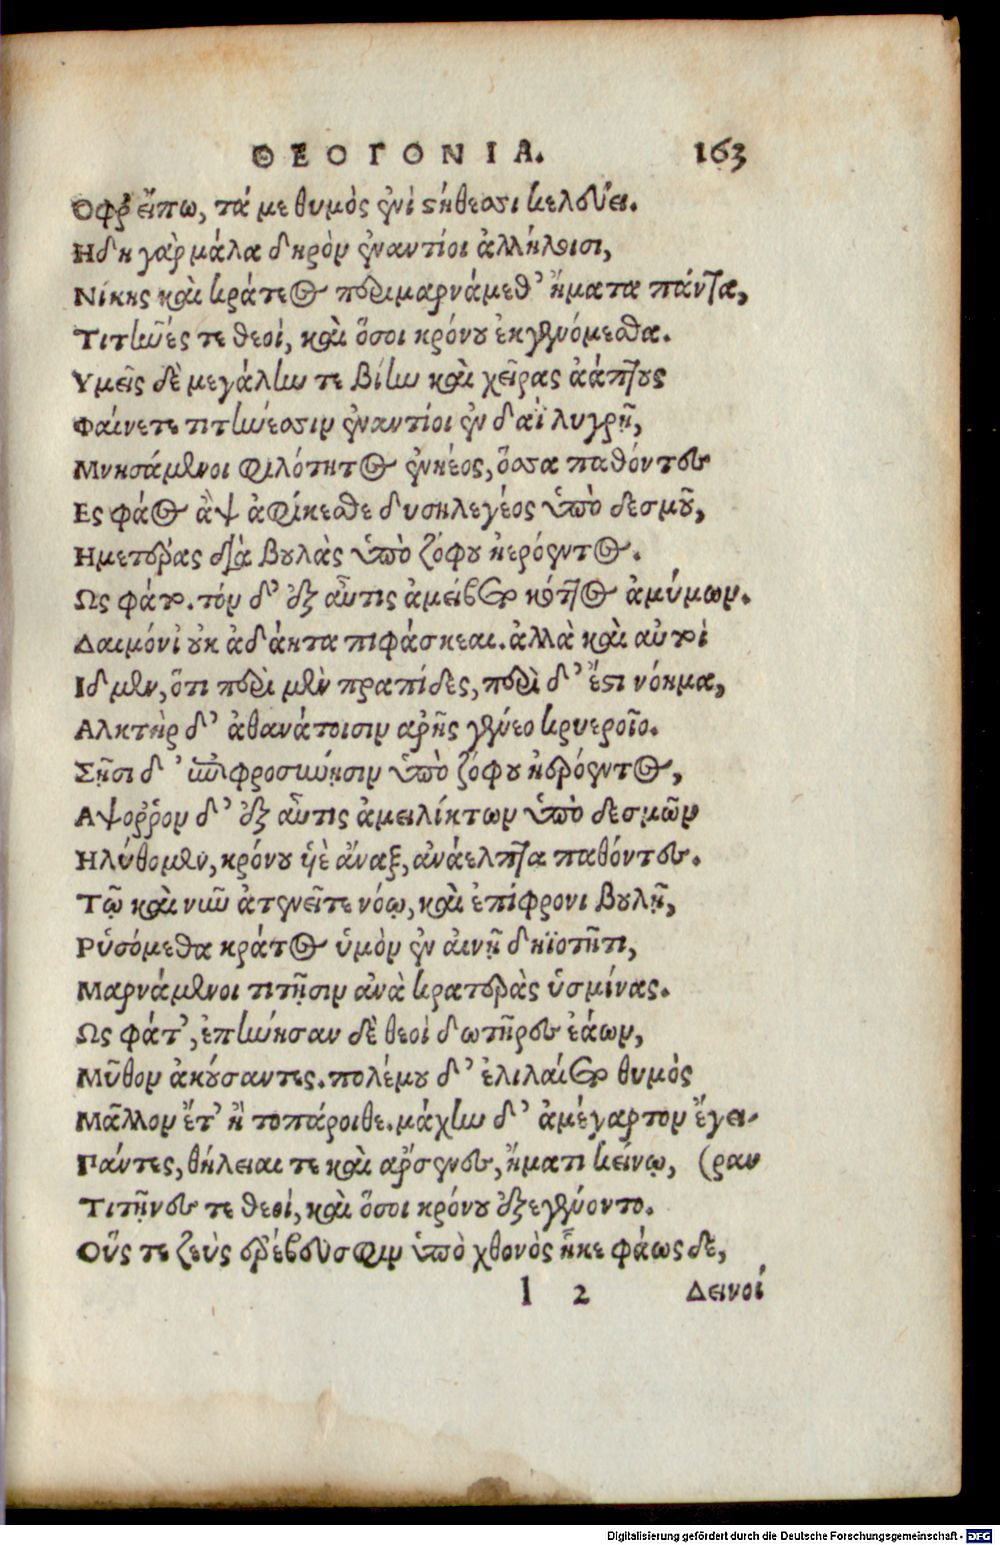 ΘΕΟΓΟΝΙΑ. 163
Οφρ' εἴπω, τά με θυμὸς ἐνὶ στήθεσσι κελεύει.
Ηδη γὰρ μάλα δηρὸν ἐναντίοι ἀλλήλοισι,
Νίκης καὶ κράτεος περιμαρνάμεθ' ἤματα πάντα,
Τιτῆνές τε θεοί, καὶ ὅσοι κρόνου ἐκγενόμεσθα.
Υμεῖς δὲ μεγάλην τε βίην καὶ χεῖρας ἀάπτους
Φαίνετε τιτήνεσσιν ἐναντίοι ἐν δαῒ λυγρῇ,
Μνησάμενοι φιλότητος ἐνηέος, ὅσσα παθόντες
Ες φάος ἂψ ἀφίκεσθε δυσηλεγέος ὑπὸ δεσμοῦ,
Ημετέρας διὰ βουλὰς ὑπὸ ζόφου ἠερόεντος.
Ως φάτο. τὸν δ' ἐξ αὖτις ἀμείβετο κόττος ἀμύμων.
Δαιμόνι' οὐκ ἀδάητα πιφάσκεαι. ἀλλὰ καὶ αὐτοὶ
Ιδμεν, ὅτι περὶ μὲν πραπίδες, περὶ δ' ἔστι νόημα,
Αλκτὴρ δ' ἀθανάτοισιν ἀρῆς γένεο κρυεροῖο.
Σῇσι δ' ἐπιφροσύνῃσιν ὑπὸ ζόφου ἠερόεντος,
Αψοῤῥον δ' ἐξ αὖτις ἀμειλίκτων ὑπὸ δεσμῶν
Ηλύθομεν, κρόνου ὑὲ ἄναξ, ἀνάελπτα παθόντες.
Τῷ καὶ νῦν ἀτενεῖ τε νόῳ, καὶ ἐπίφρονι βουλῇ,
Ρυσόμεθα κράτος ὑμὸν ἐν αἰνῇ δηϊοτῆτι,
Μαρνάμενοι τιτῆσιν ἀνὰ κρατερὰς ὑσμίνας.
Ως φάτ', ἐπῄνησαν δὲ θεοὶ δωτῆρες ἐάων,
Μῦθον ἀκούσαντες. πολέμου δ' ἐλιλαίετο θυμὸς
Μᾶλλον ἔτ' ἢ τοπάροιθε. μάχην δ' ἀμέγαρτον ἔγει-
Πάντες, θήλειαι τε καὶ ἄρσενες, ἤματι κείνῳ, (ραν
Τιτῆνες τε θεοί, καὶ ὅσοι κρόνου ἐξεγένοντο.
Οὕς τε ζεὺς ἐρέβευσφιν ὑπὸ χθονὸς ἧκε φάωςδε,
l 2 Δεινοί
Digitalisierung gefördert durch die Deutsche Forschungsgemeinschaft - DFG